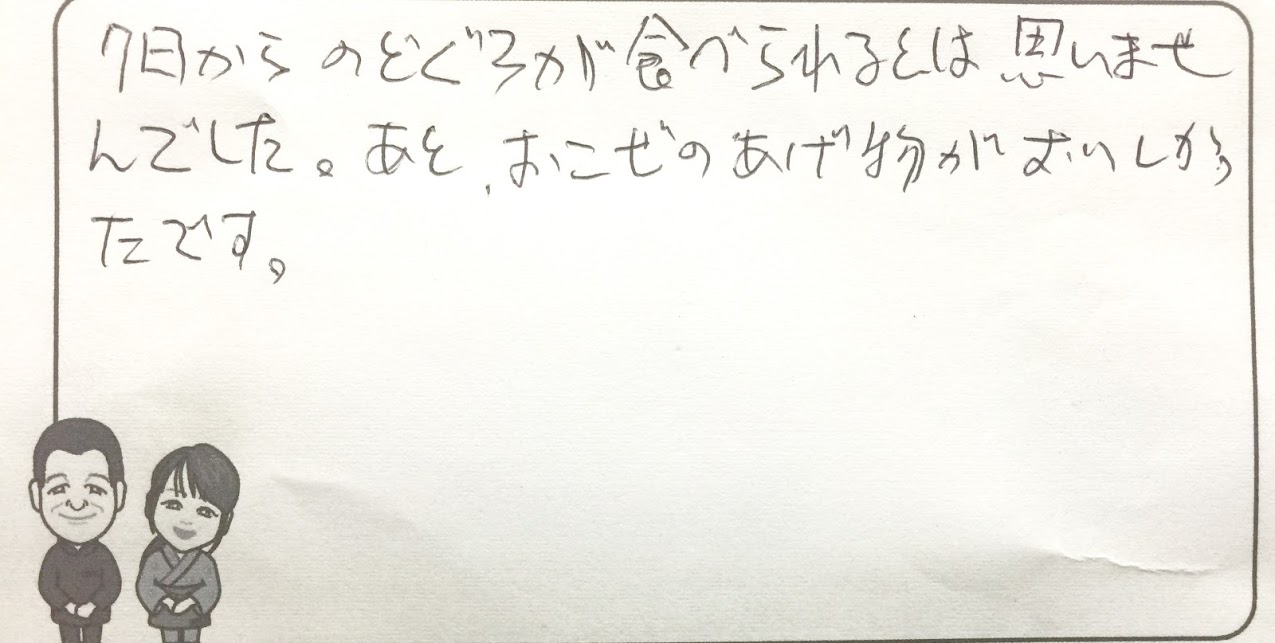 7日からのどぐろが食べられるとは思いませ
んでした。あと、おこぜのあげ物がおいしかっ
たです。